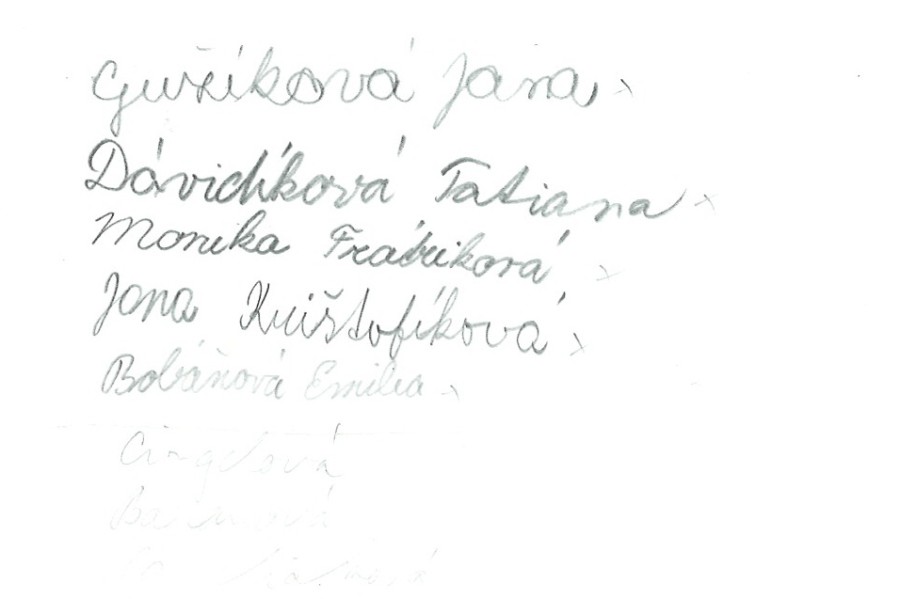 Gužíková Jana
Dávidíková Tatiana
Monika Frátriková
Jana Krištofíková
Bobáňová Emília
Cingelová